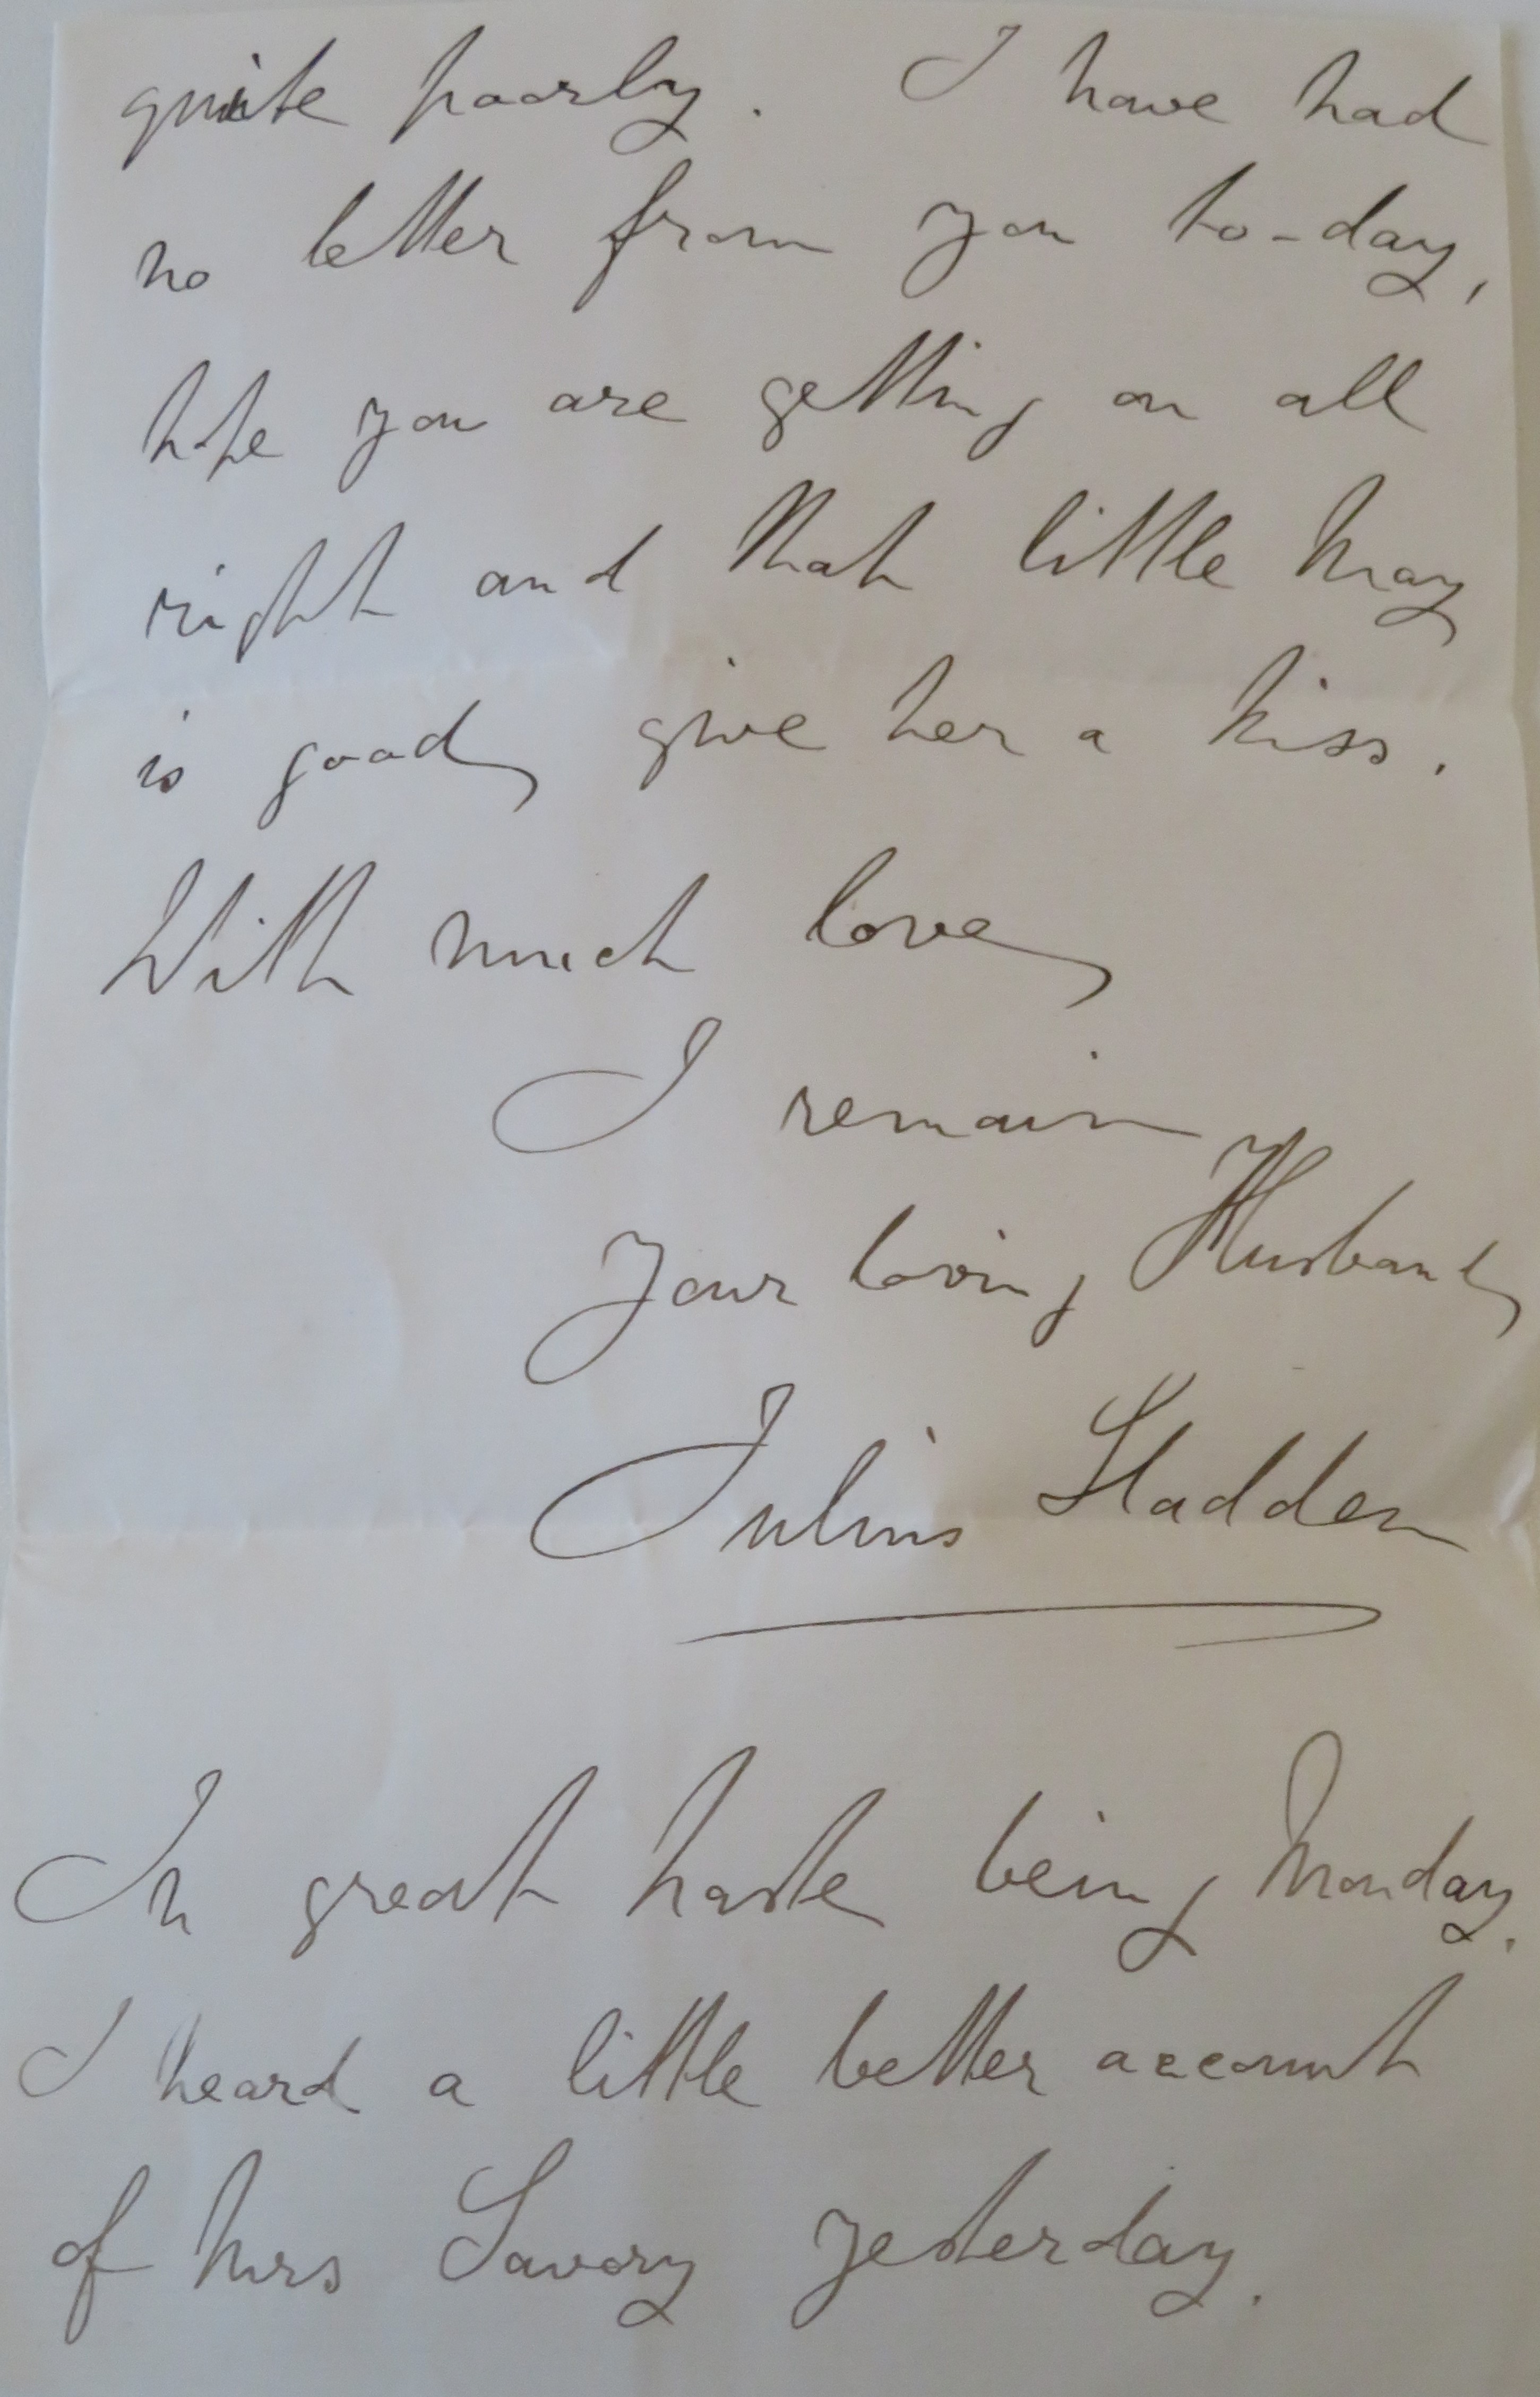 quite poorly. I have had
no letter from you to-day,
hope you are getting on all
right and that little May
is good, give her a kiss.
With much love,
I remain
Your loving Husband,
Julius Sladden
In great haste being Monday.
I heard a little better account
of Mrs Savory yesterday.